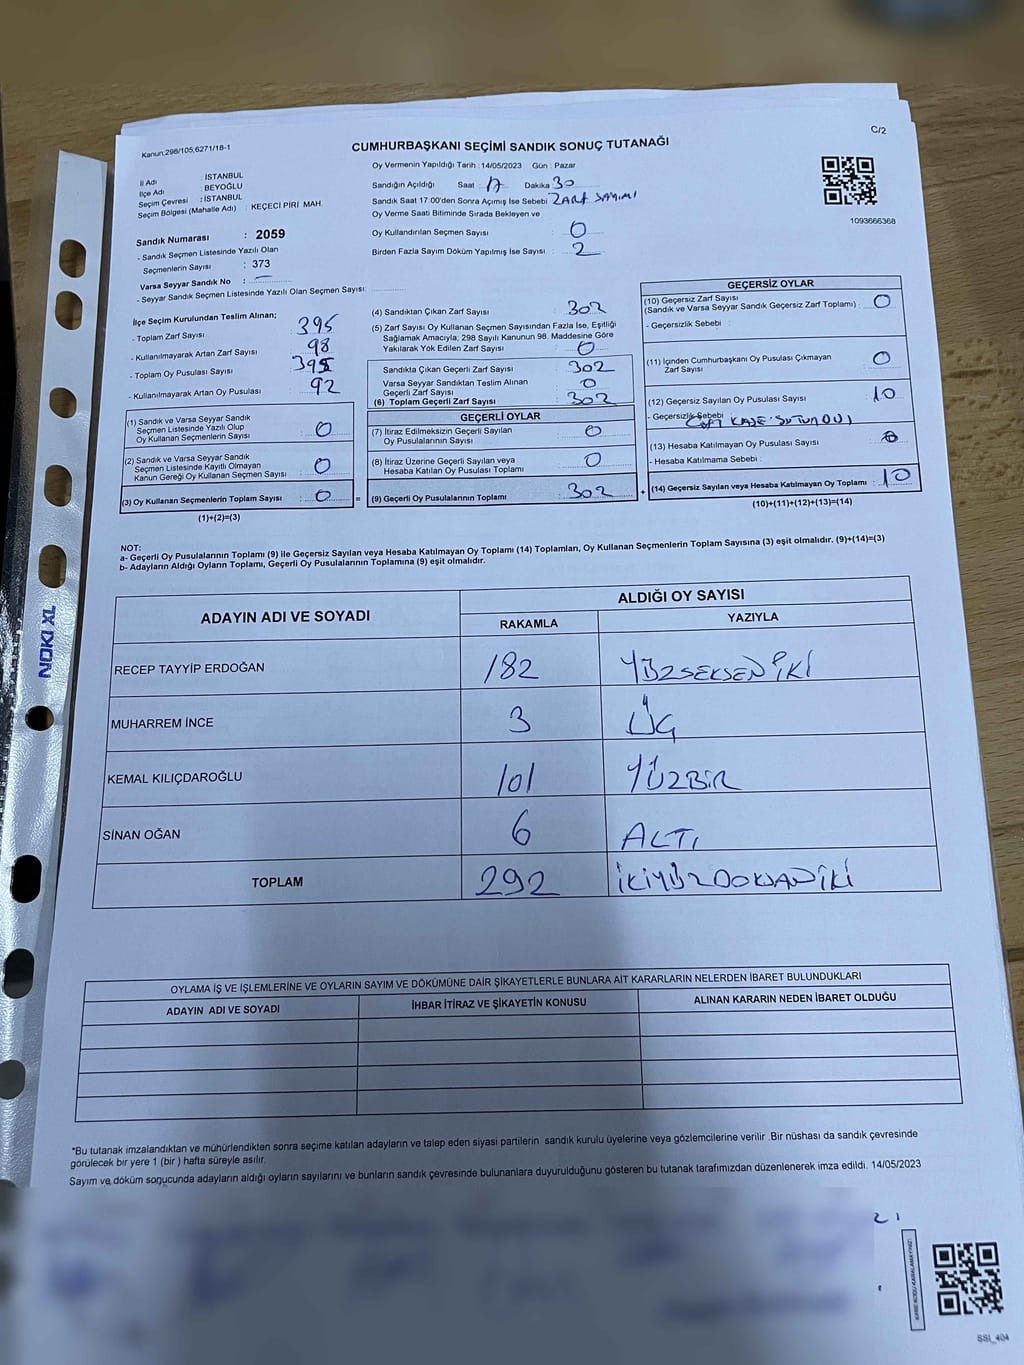 C/2
Kanun:298/105,6271/18-1
CUMHURBAŞKANI SEÇİMİ SANDIK SONUÇ TUTANAĞI
İl Adı : İSTANBUL
İlçe Adı : BEYOĞLU
Seçim Çevresi : İSTANBUL
Seçim Bölgesi (Mahalle Adı) : KEÇECİ PİRİ MAH.
Sandık Numarası : 2059
- Sandık Seçmen Listesinde Yazılı Olan
Seçmenlerin Sayısı : 373
Varsa Seyyar Sandık No : —
- Seyyar Sandık Seçmen Listesinde Yazılı Olan Seçmen Sayısı:
Oy Vermenin Yapıldığı Tarih : 14/05/2023 Gün : Pazar
Sandığın Açıldığı Saat : 17 Dakika 30
Sandık Saat 17:00'den Sonra Açımış İse Sebebi ZARF SAYIMI
Oy Verme Saati Bitiminde Sırada Bekleyen ve
Oy Kullandırılan Seçmen Sayısı : 0
Birden Fazla Sayım Döküm Yapılmış İse Sayısı : 2
1093666368
İlçe Seçim Kurulundan Teslim Alınan;
- Toplam Zarf Sayısı : 395
- Kullanılmayarak Artan Zarf Sayısı : 98
- Toplam Oy Pusulası Sayısı : 395
- Kullanılmayarak Artan Oy Pusulası : 92
(1) Sandık ve Varsa Seyyar Sandık
Seçmen Listesinde Yazılı Olup
Oy Kullanan Seçmenlerin Sayısı : 0
(2) Sandık ve Varsa Seyyar Sandık
Seçmen Listesinde Kayıtlı Olmayan
Kanun Gereği Oy Kullanan Seçmen Sayısı : 0
(3) Oy Kullanan Seçmenlerin Toplam Sayısı : 0 =
(1)+(2)=(3)
(4) Sandıktan Çıkan Zarf Sayısı : 302
(5) Zarf Sayısı Oy Kullanan Seçmen Sayısından Fazla İse, Eşitliği
Sağlamak Amacıyla; 298 Sayılı Kanunun 98. Maddesine Göre
Yakılarak Yok Edilen Zarf Sayısı : 0
Sandıkta Çıkan Geçerli Zarf Sayısı : 302
Varsa Seyyar Sandıktan Teslim Alınan
Geçerli Zarf Sayısı : 0
(6) Toplam Geçerli Zarf Sayısı : 302
GEÇERLİ OYLAR
(7) İtiraz Edilmeksizin Geçerli Sayılan
Oy Pusulalarının Sayısı : 0
(8) İtiraz Üzerine Geçerli Sayılan veya
Hesaba Katılan Oy Pusulası Toplamı : 0
(9) Geçerli Oy Pusulalarının Toplamı : 302 +
GEÇERSİZ OYLAR
(10) Geçersiz Zarf Sayısı
(Sandık ve Varsa Seyyar Sandık Geçersiz Zarf Toplamı) : 0
- Geçersizlik Sebebi :
(11) İçinden Cumhurbaşkanı Oy Pusulası Çıkmayan
Zarf Sayısı : 0
(12) Geçersiz Sayılan Oy Pusulası Sayısı : 10
- Geçersizlik Sebebi
(13) Hesaba Katılmayan Oy Pusulası Sayısı : 0
- Hesaba Katılmama Sebebi :
(14) Geçersiz Sayılan veya Hesaba Katılmayan Oy Toplamı : 10
(10)+(11)+(12)+(13)=(14)
NOT:
a- Geçerli Oy Pusulalarının Toplamı (9) ile Geçersiz Sayılan veya Hesaba Katılmayan Oy Toplamı (14) Toplamları, Oy Kullanan Seçmenlerin Toplam Sayısına (3) eşit olmalıdır. (9)+(14)=(3)
b- Adayların Aldığı Oyların Toplamı, Geçerli Oy Pusulalarının Toplamına (9) eşit olmalıdır.
ADAYIN ADI VE SOYADI ALDIĞI OY SAYISI
RAKAMLA YAZIYLA
RECEP TAYYİP ERDOĞAN 182 YÜZSEKSENİKİ
MUHARREM İNCE 3 ÜÇ
KEMAL KILIÇDAROĞLU 101 YÜZBİR
SİNAN OĞAN 6 ALTI
TOPLAM 292 İKİYÜZDOKSANİKİ
OYLAMA İŞ VE İŞLEMLERİNE VE OYLARIN SAYIM VE DÖKÜMÜNE DAİR ŞİKAYETLERLE BUNLARA AİT KARARLARIN NELERDEN İBARET BULUNDUKLARI
ADAYIN ADI VE SOYADI İHBAR İTİRAZ VE ŞİKAYETİN KONUSU ALINAN KARARIN NEDEN İBARET OLDUĞU
*Bu tutanak imzalandıktan ve mühürlendikten sonra seçime katılan adayların ve talep eden siyasi partilerin sandık kurulu üyelerine veya gözlemcilerine verilir .Bir nüshası da sandık çevresinde
görülecek bir yere 1 (bir ) hafta süreyle asılır.
Sayım ve döküm sonucunda adayların aldığı oyların sayılarını ve bunların sandık çevresinde bulunanlara duyurulduğunu gösteren bu tutanak tarafımızdan düzenlenerek imza edildi. 14/05/2023
KARE KODU KARALAMAYINIZ!
SSI_404
NOKI XL